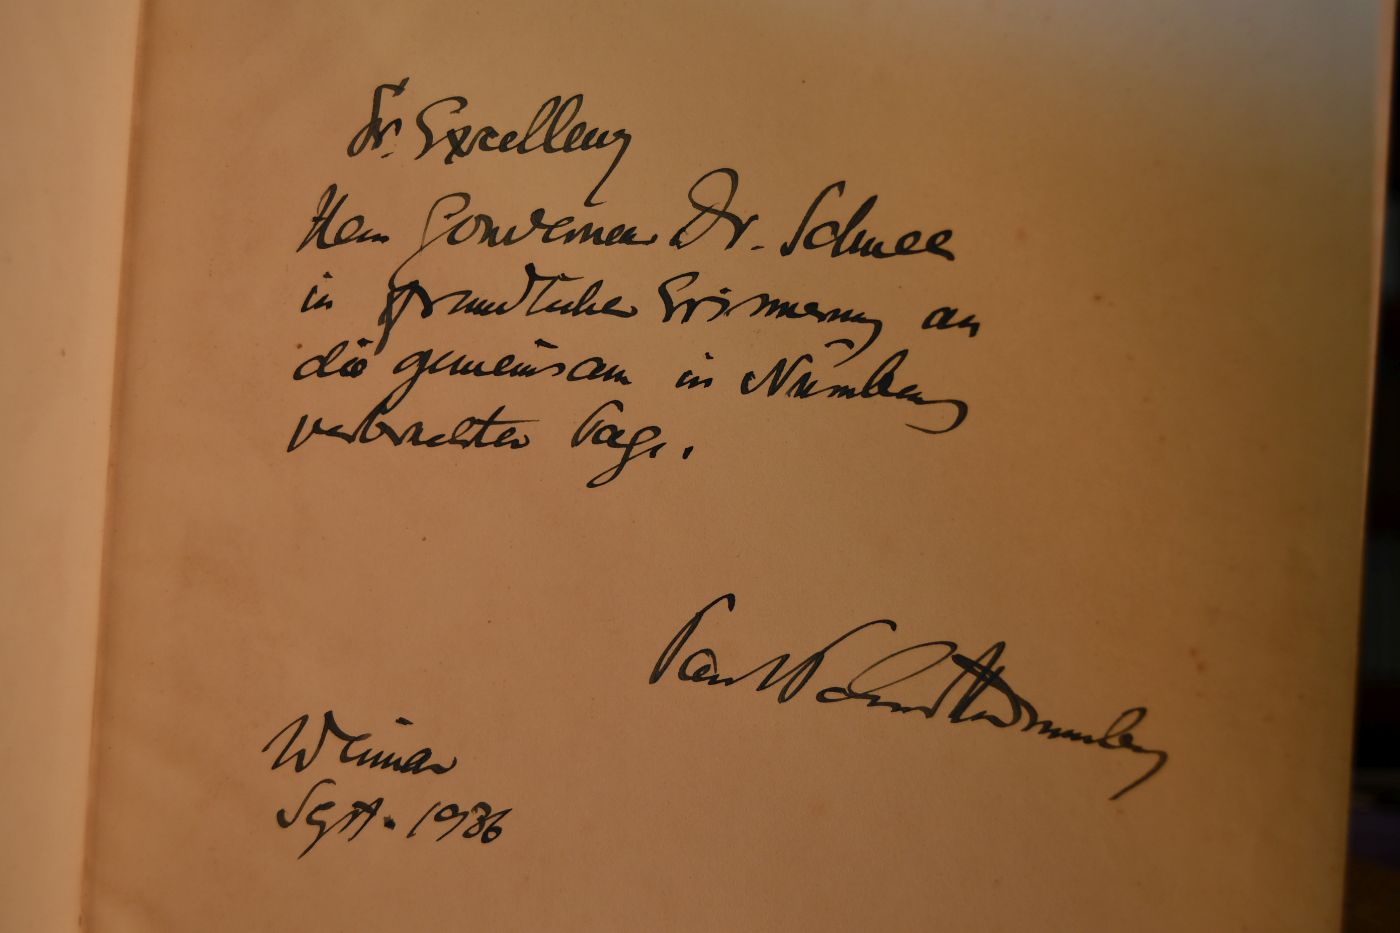 Sr. Excellenz
Herrn Gouverneur Dr. Schnee
in freundlicher Erinnerung an
die gemeinsam in Nürnberg
verbrachten Tage.
Paul Schultze-Naumburg
Weimar
Sept. 1936